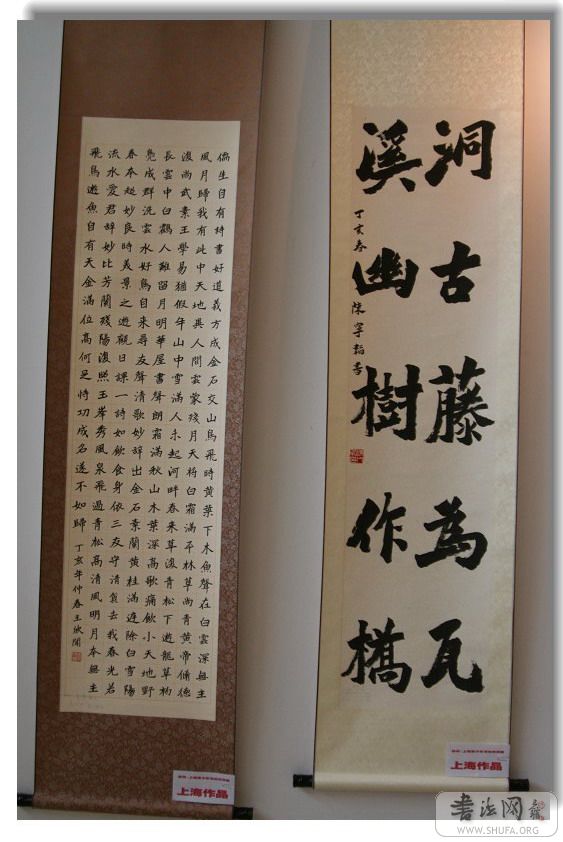 洞古藤為瓦
溪幽樹作橋
丁亥春
生自有持書好道義方成金石交山鳥飛時黃葉下木魚聲在白雲深無主
風月歸我有此中天地與人間雲蒙殘月天將白霜滿平林草尚青黃帝脩德
尚武素王學易猶假年山中雪滿人未起河畔春来草復青松下遊龍草
長雲中白鶴人難留月明華屋書聲朗霜滿秋山木葉深高歌痛飲小天地野
鳧成群洗雲水好鳥自来尋友聲清歌妙辭出金石素蘭黃桂滿遊除白雪陽
春本超妙良時美景之遊觀日課一詩如飲食身依三友守清貧去我春光若
流水愛君辭妙比芳蘭殘陽復照玉岸秀風泉飛過青松高清風明月本無主
飛鳥遊魚自有天金滿位高何足恃功成名遂不如歸 丁亥年仲春王欣
上海作品
上海作品
書法网
WWW.SHUFA.ORG